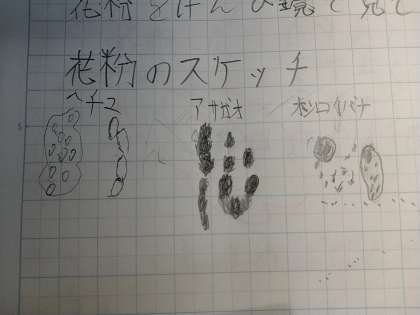 花粉をけんび鏡で見て
花粉のスケッチ
ヘチマ アサガオ オシロイバナ